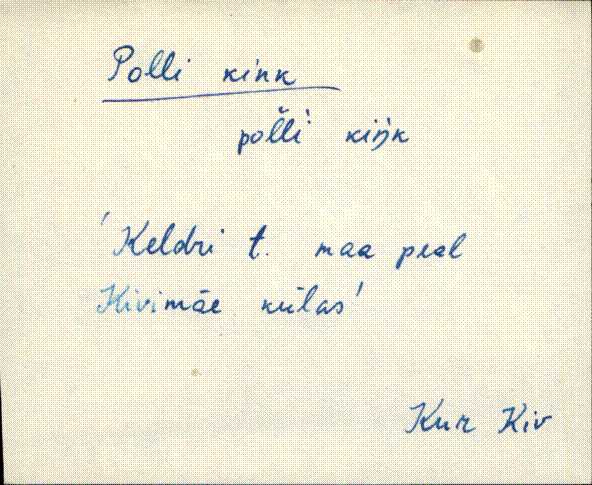 Polli kink
poĺli kiŋk
'Keldri t. maa peal
Kivimäe külas'
Kur Kiv